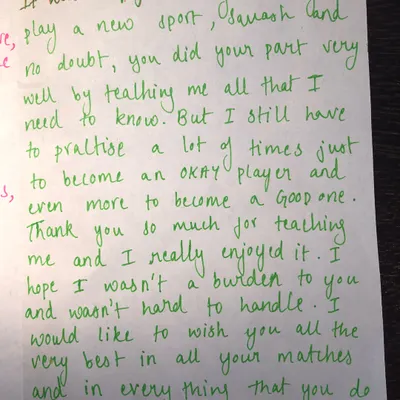 play a new sport, squash and
no doubt, you did your part very
well by teaching me all that I
need to know. But I still have
to practise a lot of times just
to become an OKAY player and
even more to become a GOOD one.
Thank you so much for teaching
me and I really enjoyed it. I
hope I wasn't a burden to you
and wasn't hard to handle. I
would like to wish you all the
very best in all your matches
and in every thing that you do